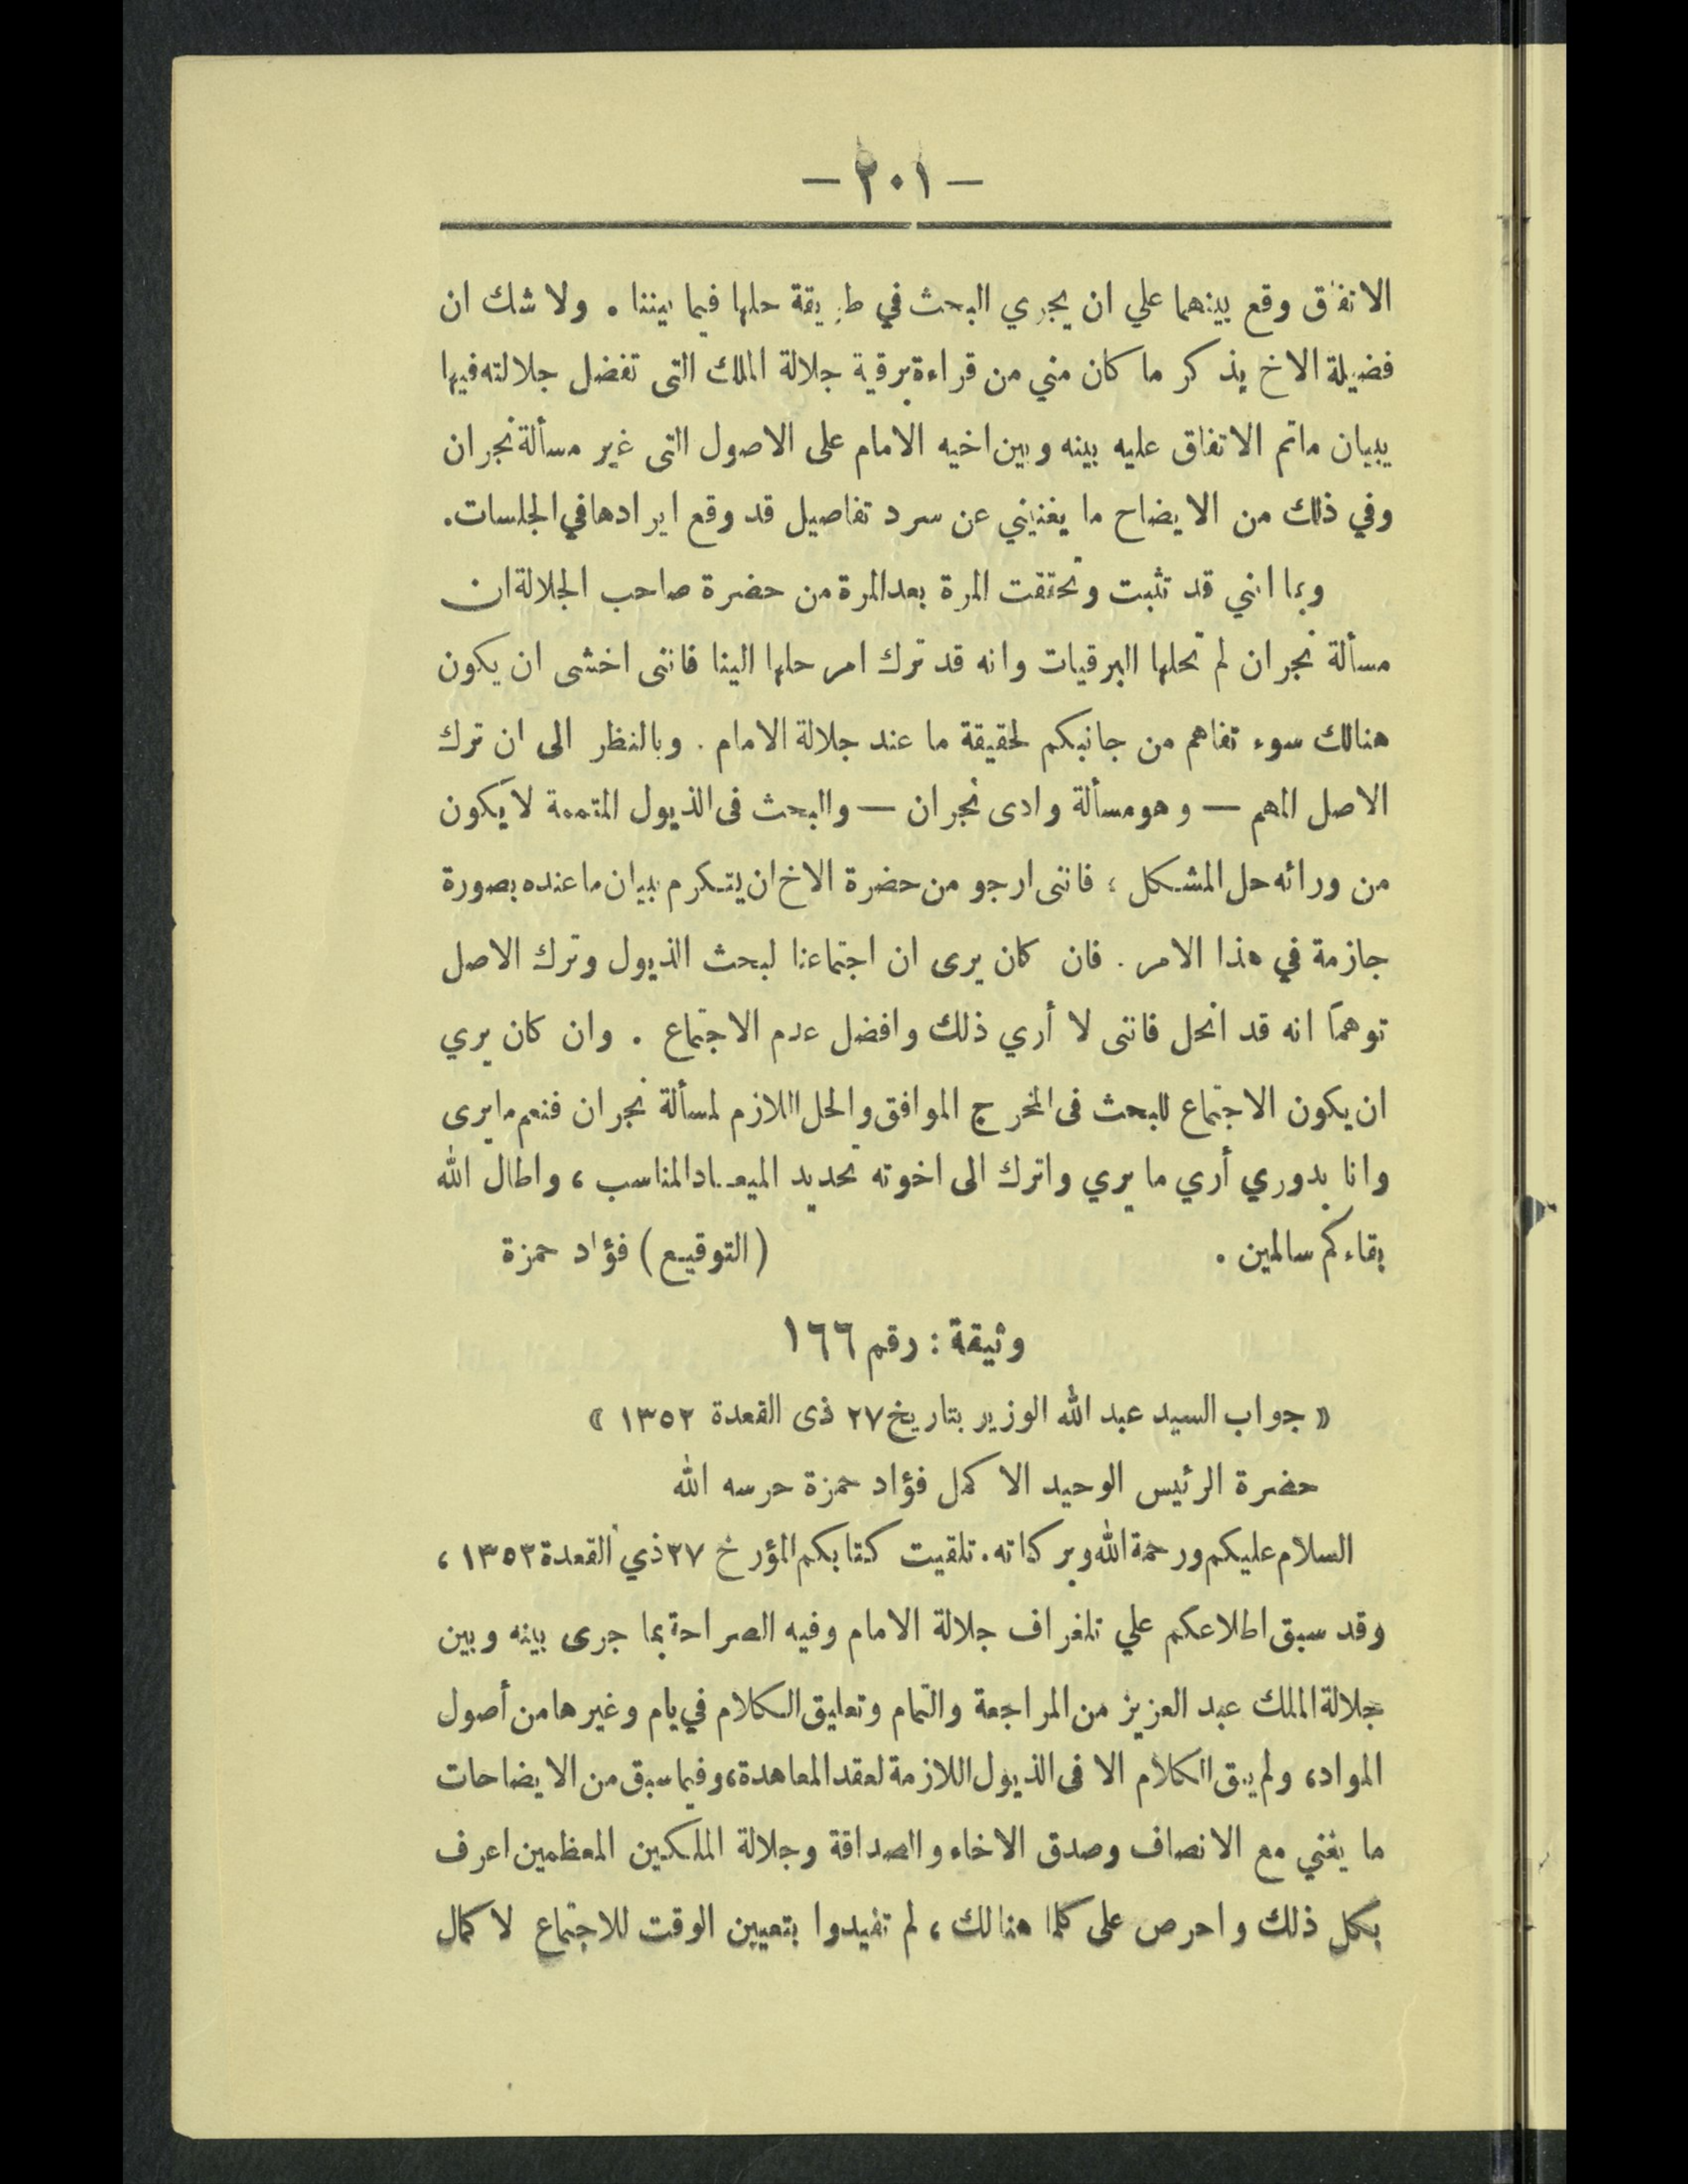 — ٢٠١ —
الاتفاق وقع بينهما علي ان يجري البحث في طريقة حلها فيما بيننا . ولا شك ان
فضيلة الاخ يذكر ما كان مني من قراءة برقية جلالة الملك التى تفضل جلالته فيها
ببيان ماتم الاتفاق عليه بينه وبين اخيه الامام على الاصول التى غير مسألة نجران
وفي ذلك من الايضاح ما يغنيني عن سرد تفاصيل قد وقع ايرادها في الجلسات.
وبما انني قد تثبت وتحققت المرة بعد المرة من حضرة صاحب الجلالة ان
مسألة نجران لم تحلها البرقيات وانه قد ترك امر حلها الينا فاننى اخشى ان يكون
هنالك سوء تفاهم من جانبكم لحقيقة ما عند جلالة الامام . وبالنظر الى ان ترك
الاصل المهم — وهو مسألة وادى نجران — والبحث فى الذيول المتممة لا يكون
من ورائه حل المشكل ؛ فاننى ارجو من حضرة الاخ ان يتكرم ببيان ما عنده بصورة
جازمة في هذا الامر . فان كان يرى ان اجتماعنا لبحث الذيول وترك الاصل
توهماً انه قد انحل فاننى لا أري ذلك وافضل عدم الاجتماع . وان كان يري
ان يكون الاجتماع للبحث فى المخرج الموافق والحل اللازم لمسألة نجران فنعم ما يرى
وانا بدوري أري ما يري واترك الى اخوته تحديد الميعاد المناسب ، واطال الله
بقاءكم سالمين . (التوقيع) فؤاد حمزة
وثيقة : رقم ١٦٦
« جواب السيد عبد الله الوزير بتاريخ ٢٧ ذى القعدة ١٣٥٢ »
حضرة الرئيس الوحيد الاكمل فؤاد حمزة حرسه الله
السلام عليكم ورحمة الله وبركاته. تلقيت كتابكم المؤرخ ٢٧ ذي القعدة ١٣٥٢ ،
وقد سبق اطلاعكم علي تلغراف جلالة الامام وفيه الصراحة بما جرى بينه وبين
جلالة الملك عبد العزيز من المراجعة والتمام وتعليق الكلام في يام وغيرها من أصول
المواد ، ولم يبق الكلام الا فى الذيول اللازمة لعقد المعاهدة ، وفيما سبق من الايضاحات
ما يغني مع الانصاف وصدق الاخاء والصداقة وجلالة الملكين المعظمين اعرف
بكل ذلك واحرص على كلما هنالك ، لم تفيدوا بتعيين الوقت للاجتماع لاكمال